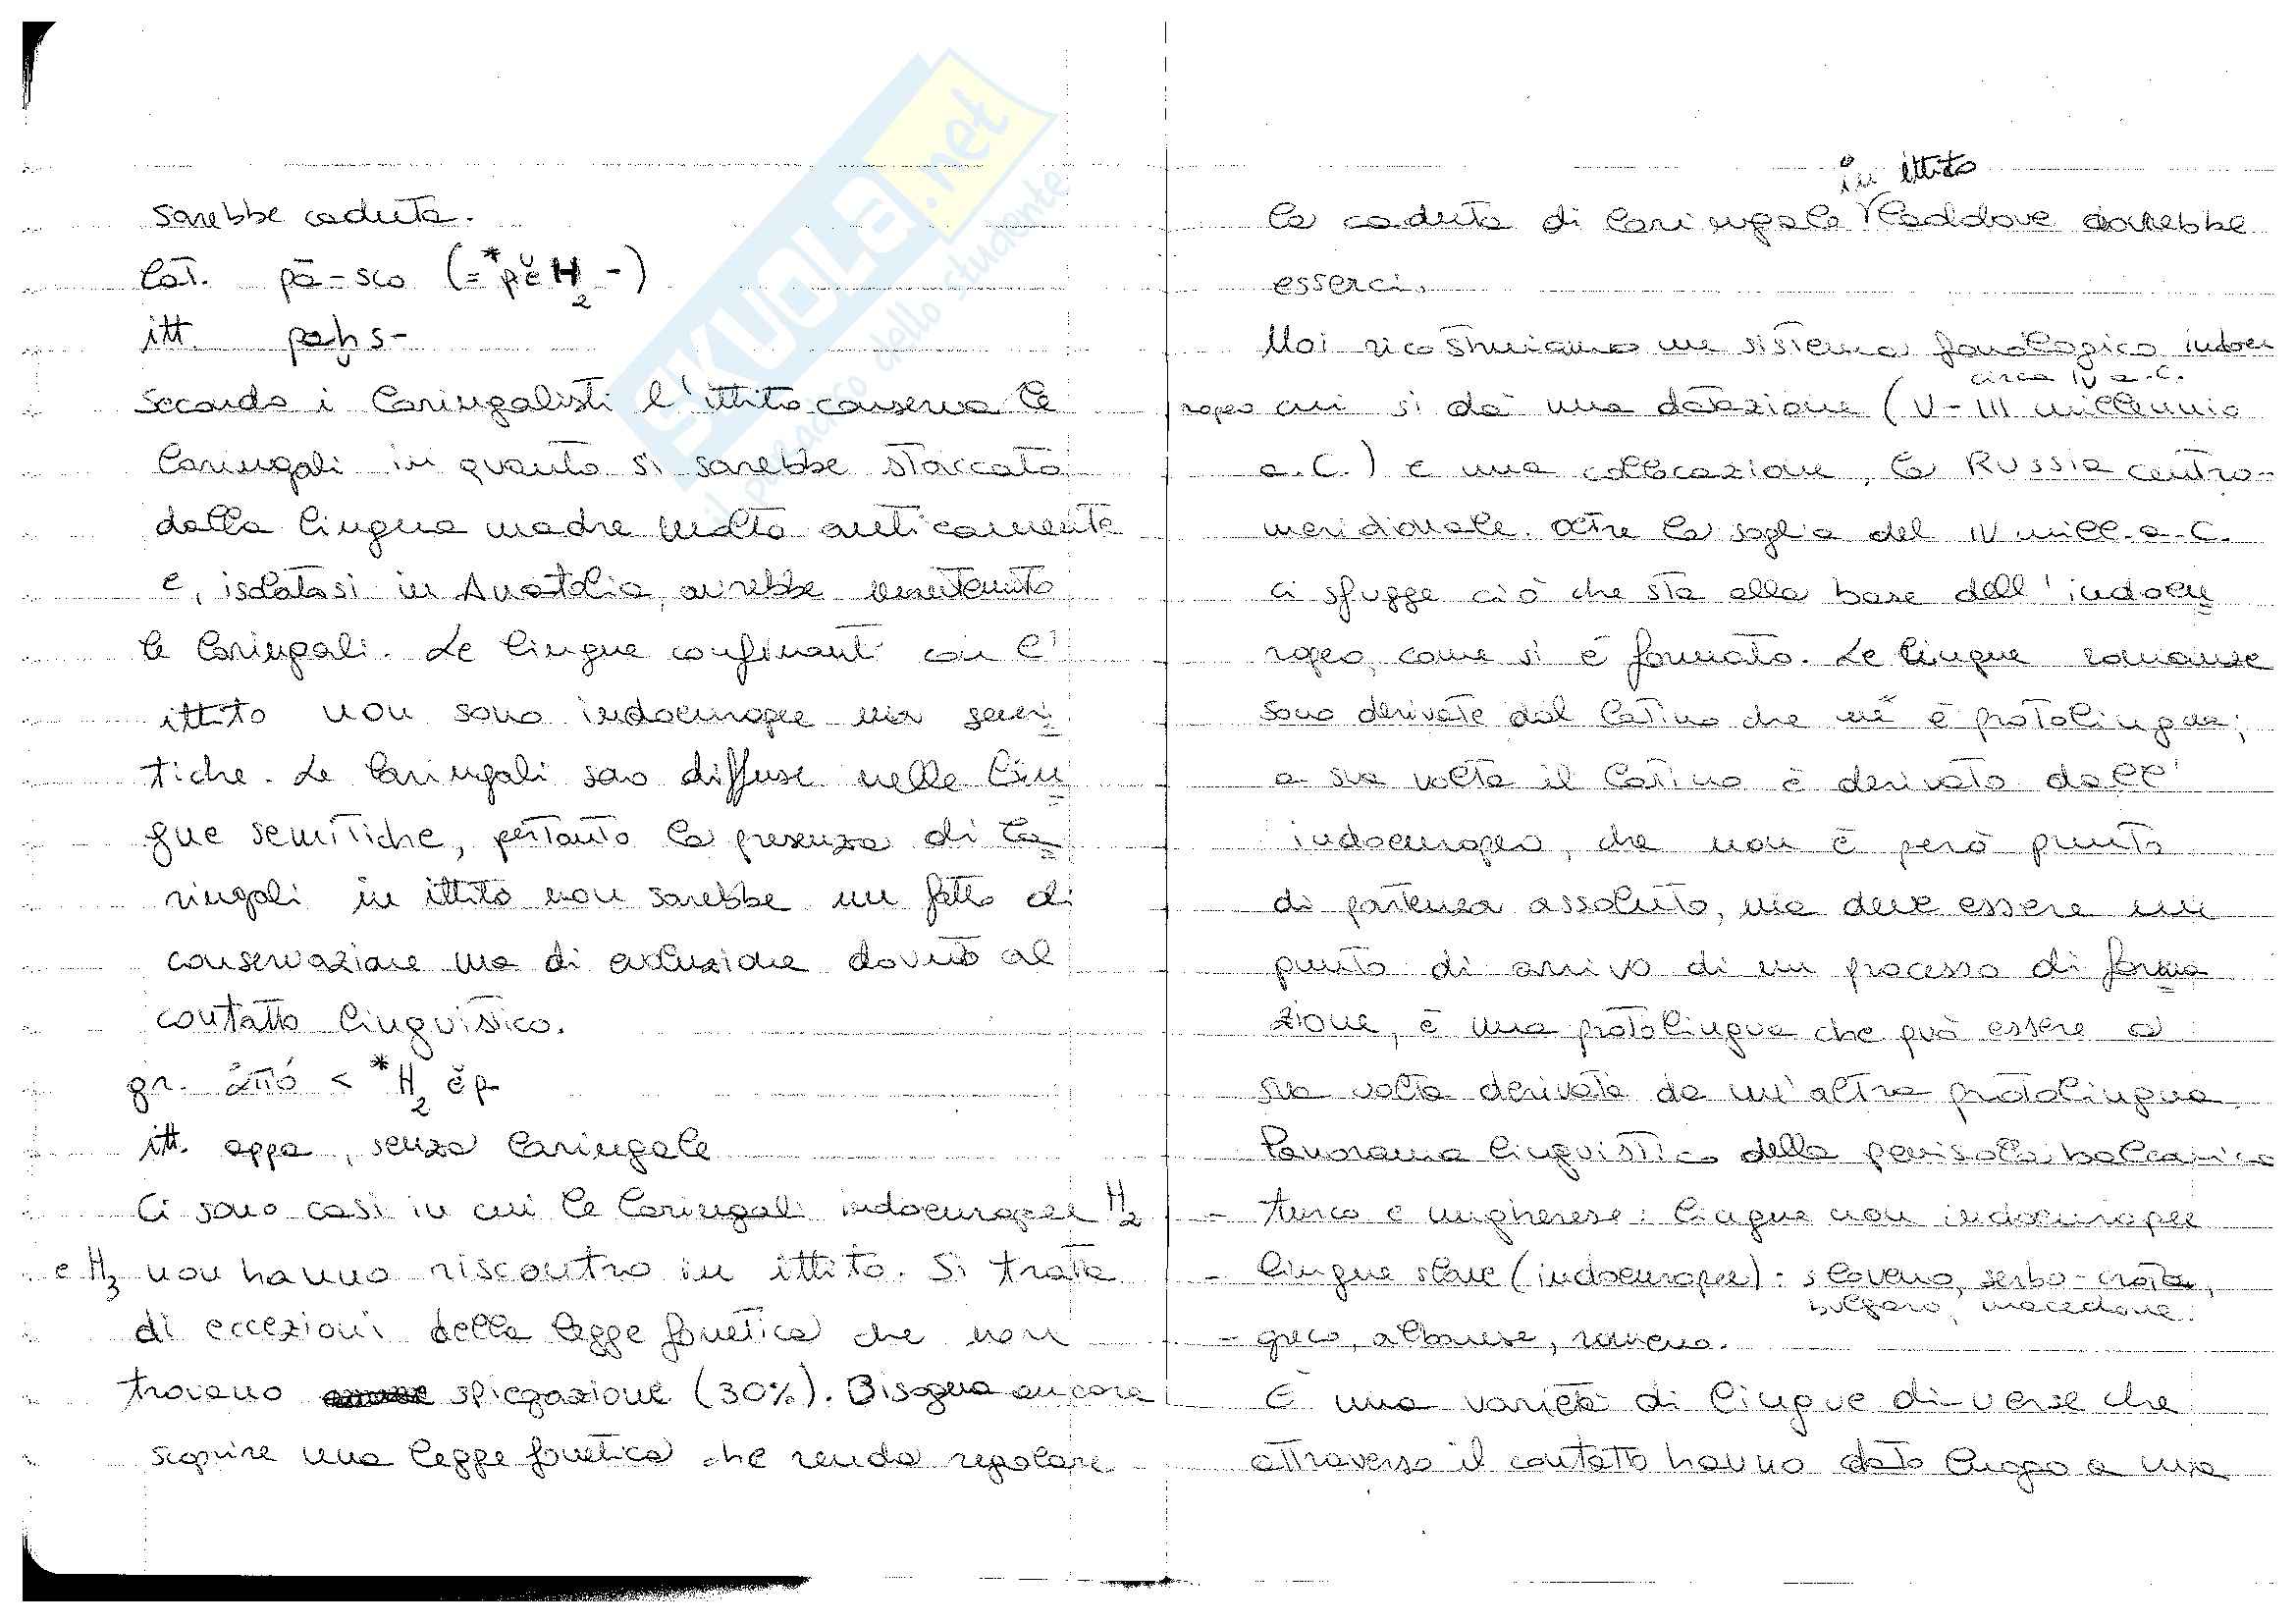 sarebbe caduta.
lat. pā-sco (=*pĕH₂-)
itt. paḫs-
secondo i laringalisti l'ittito conserva le
laringali in quanto si sarebbe staccato
dalla lingua madre molto anticamente
e, isolatosi in Anatolia, avrebbe mantenuto
le laringali. Le lingue confinanti con l'
ittito non sono indoeuropee ma semi
tiche. Le laringali sono diffuse nelle lin
gue semitiche, pertanto la presenza di la
ringali in ittito non sarebbe un fatto di
conservazione ma di evoluzione dovuto al
contatto linguistico.
gr. ἀπό < *H₂ĕp
itt. appa, senza laringale
Ci sono casi in cui le laringali indoeuropee H₂
e H₃ non hanno riscontro in ittito. Si tratta
di eccezioni della legge fonetica che non
trovano spiegazione (30%). Bisogna ancora
scoprire una legge fonetica che renda regolare
in ittito
la caduta di laringale laddove dovrebbe
esserci.
Noi ricostruiamo un sistema fonologico indoeu
circa IV a.C.
ropeo cui si dà una datazione (V-III millennio
a.C.) e una collocazione, la Russia centro-
meridionale. Oltre la soglia del IV mill. a.C.
ci sfugge ciò che sta alla base dell'indoeu
ropeo, come si è formato. Le lingue romanze
sono derivate dal latino che ne è protolingua;
a sua volta il latino è derivato dall'
indoeuropeo, che non è però punto
di partenza assoluto, ma deve essere un
punto di arrivo di un processo di forma
zione, è una protolingua che può essere a
sua volta derivata da un'altra protolingua.
Panorama linguistico della penisola balcanica
- turco e ungherese: lingue non indoeuropee
- lingue slave (indoeuropee): sloveno, serbo-croato,
bulgaro, macedone.
- greco, albanese, rumeno.
È una varietà di lingue di-verse che
attraverso il contatto hanno dato luogo a una
SKUOLA.net
il paracadute dello studente